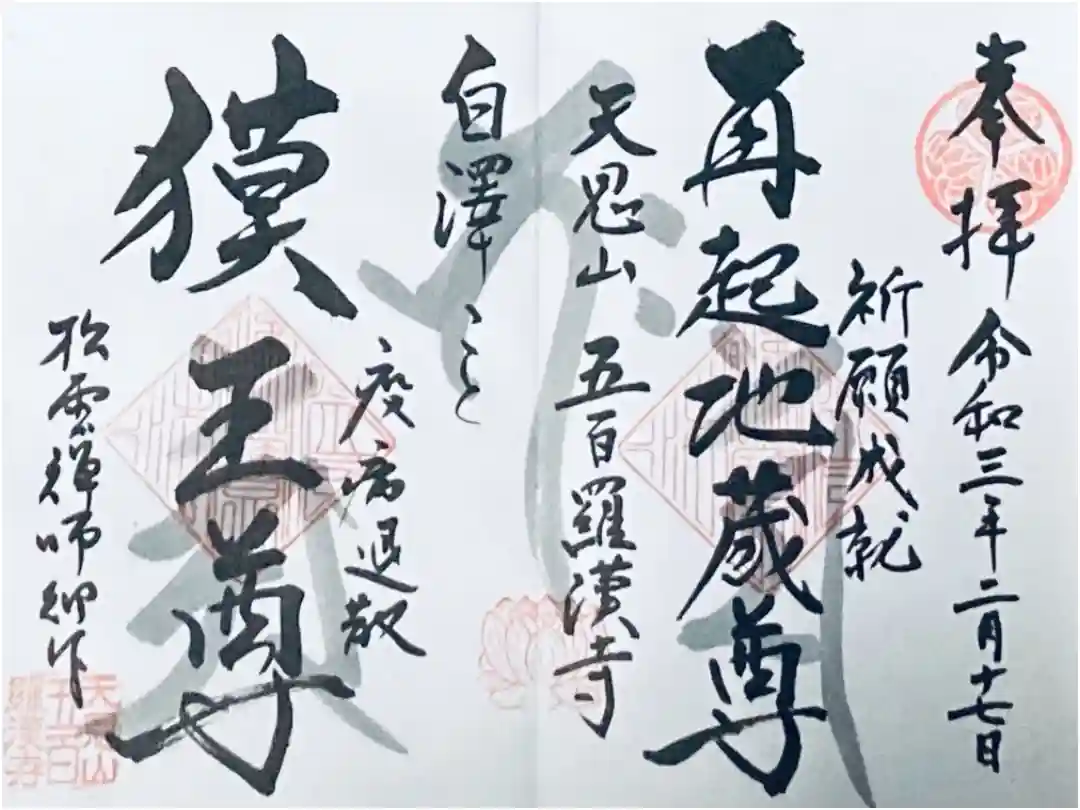 奉拝 令和三年二月十七日
祈願成就
再起地蔵尊
天恩山 五百羅漢寺
白澤こと
疫病退散
獏王尊
松雲禅師御作
天恩山五百羅漢寺